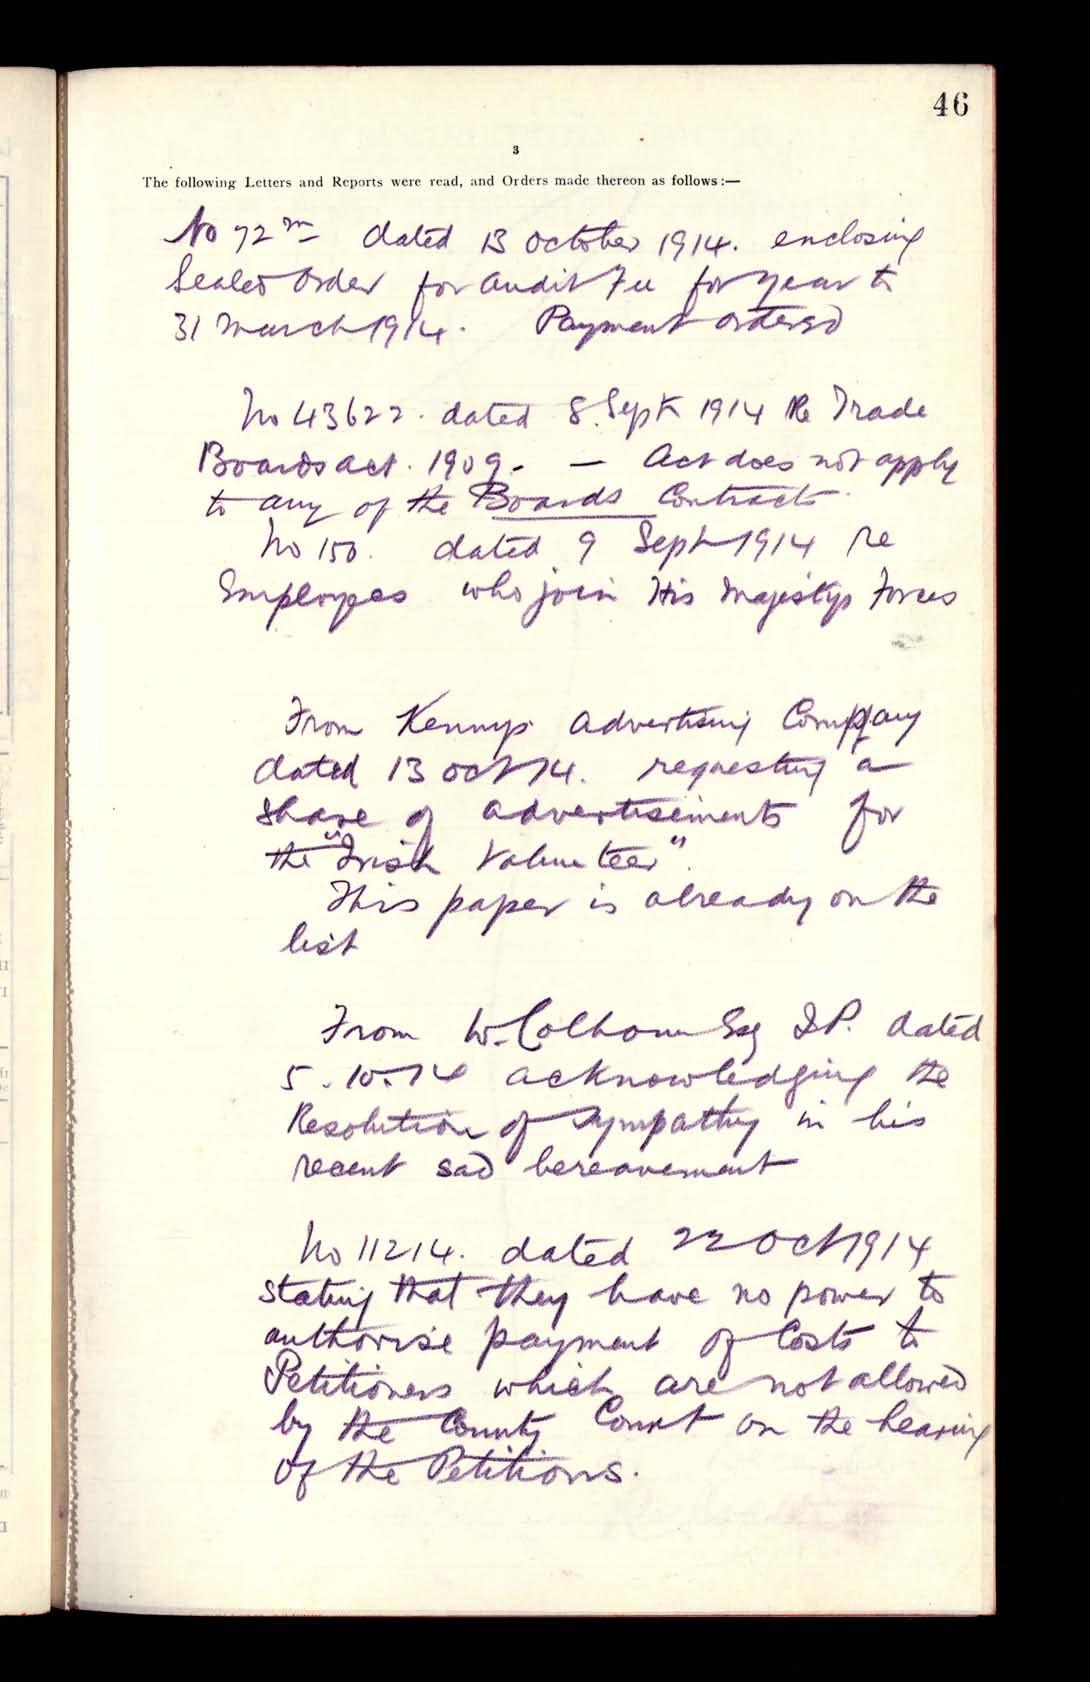 46
3
The following Letters and Reports were read, and Orders made thereon as follows:—
No 72m dated 13 October 1914. enclosing
Sealed Order for Audit Fee for Year to
31 March 1914. Payment ordered
No 43622. dated 8. Sept 1914 Re Trade
Boards Act. 1909. — Act does not apply
to any of the Boards Contracts.
No 150. dated 9 Sept 1914 re
Employees who join His Majestys Forces
From Kennys Advertising Company
dated 13 Oct 14. requesting a
share of advertisements for
the "Irish Volunteer".
This paper is already on the
list
From W. Colhoun Esq J.P. dated
5.10.14 acknowledging the
Resolution of Sympathy in his
recent sad bereavement
No 11214. dated 22 Oct 1914
stating that they have no power to
authorise payment of Costs to
Petitioners which are not allowed
by the County Court on the hearing
of the Petitions.